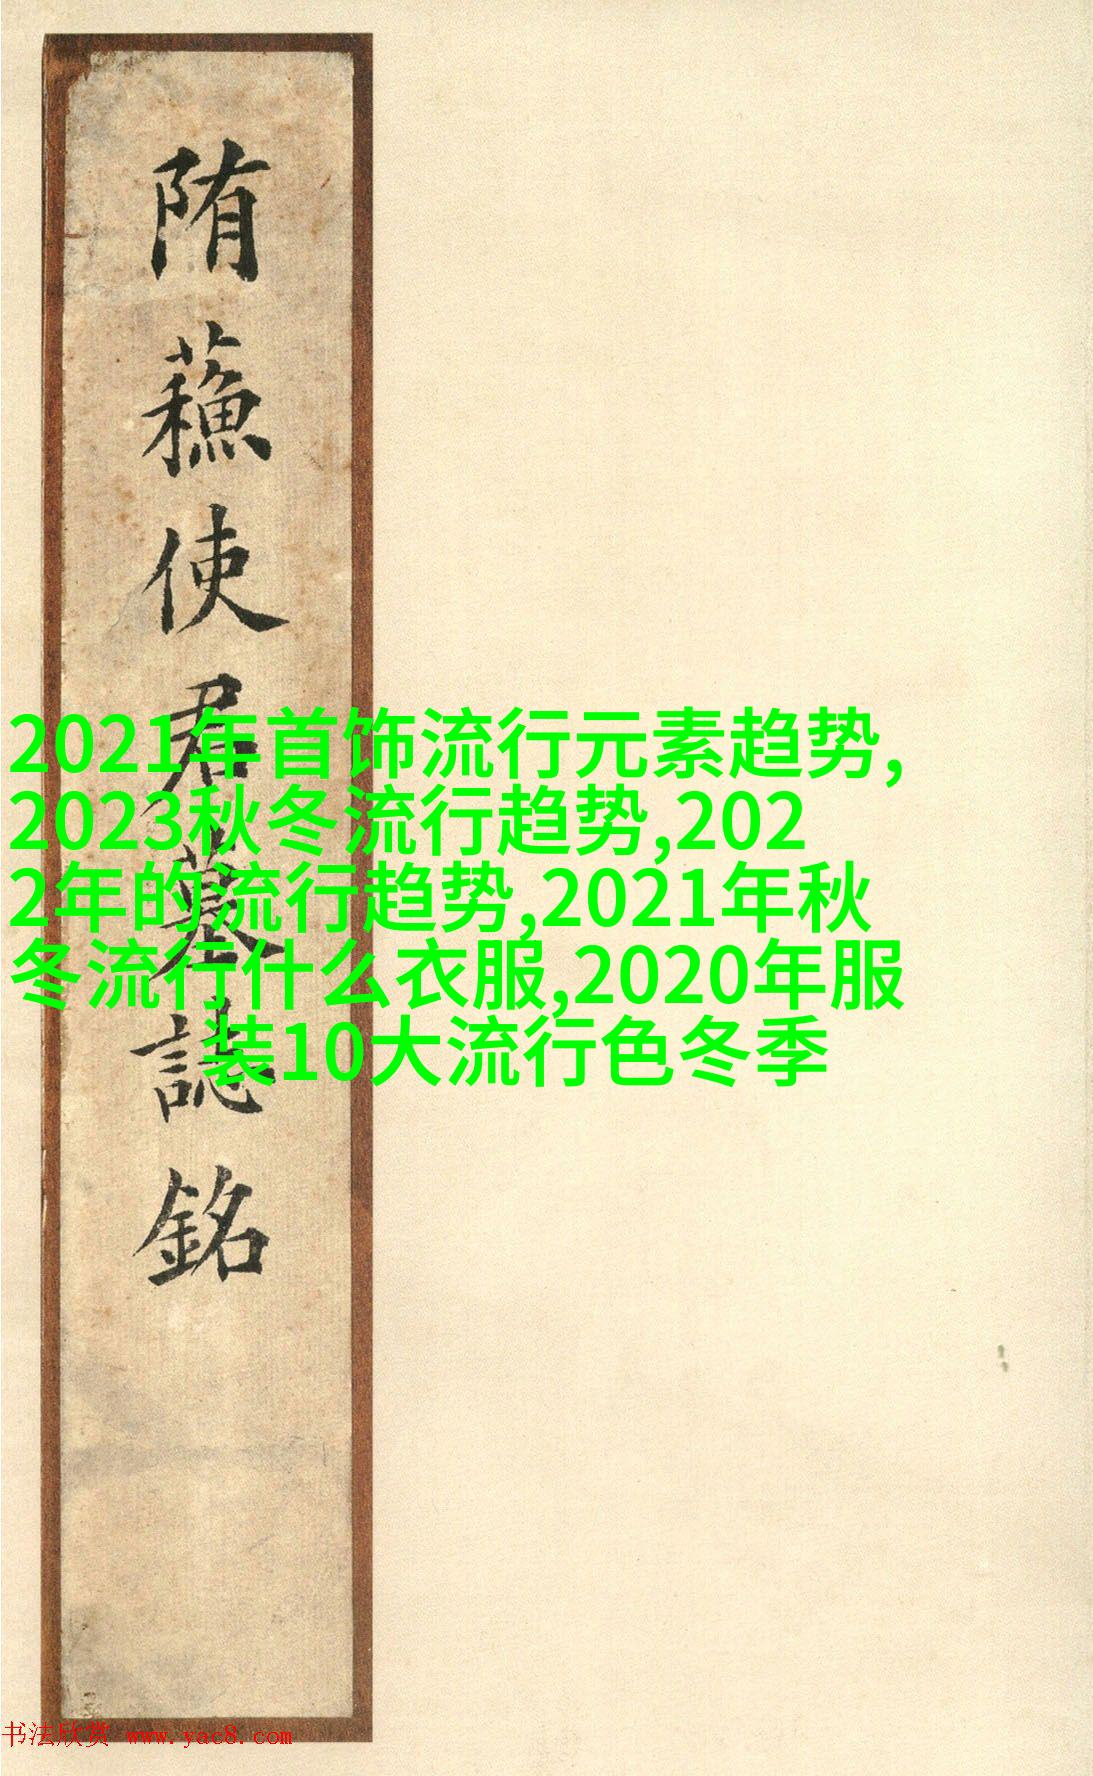 隋蘓使君墓誌銘
2021年首饰流行元素趋势,
2023秋冬流行趋势,202
2年的流行趋势,2021年秋
冬流行什么衣服,2020年服
装10大流行色冬季
书法欣赏 www.yac8.com